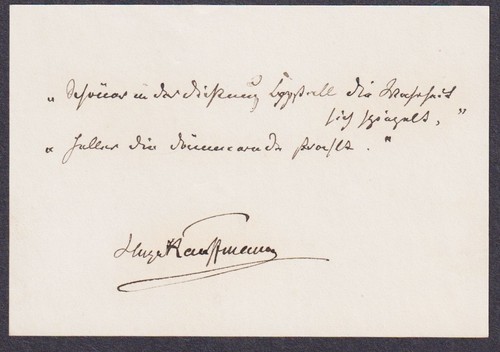 „Schöner in der Dichtung Krystall die Wahrheit
sich spiegelt,"
„heller die dämmernde strahlt."
Hugo Kauffmann